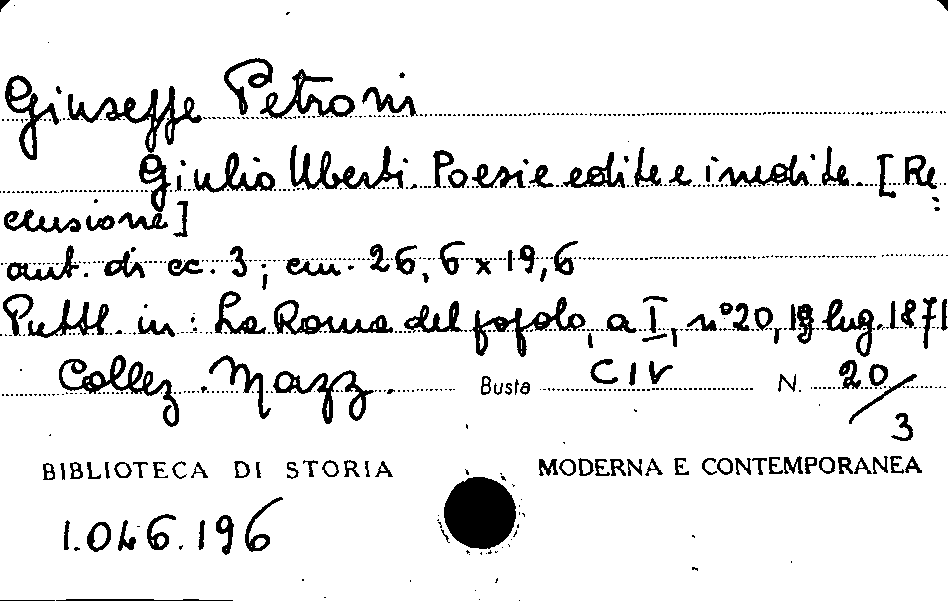 Giuseppe Petroni
Giulio Uberti. Poesie edite e inedite. [Re
censione]
aut. di cc. 3; cm. 26,6 x 19,6
Pubbl. in: La Roma del popolo, a I, n° 20, 19 lug. 1871
Collez. Mazz. Busta CIV N. 20/3
BIBLIOTECA DI STORIA MODERNA E CONTEMPORANEA
1.046.196